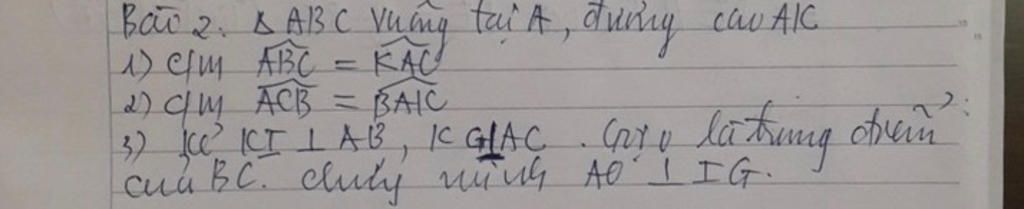 Bài 2. Δ ABC vuông tại A, đường cao AK
1) c/m ABC = KAC
2) c/m ACB = BAK
3) Kẻ KI ⊥ AB, KG ⊥ AC. Gọi O là trung điểm
của BC. Chứng minh AO ⊥ IG.